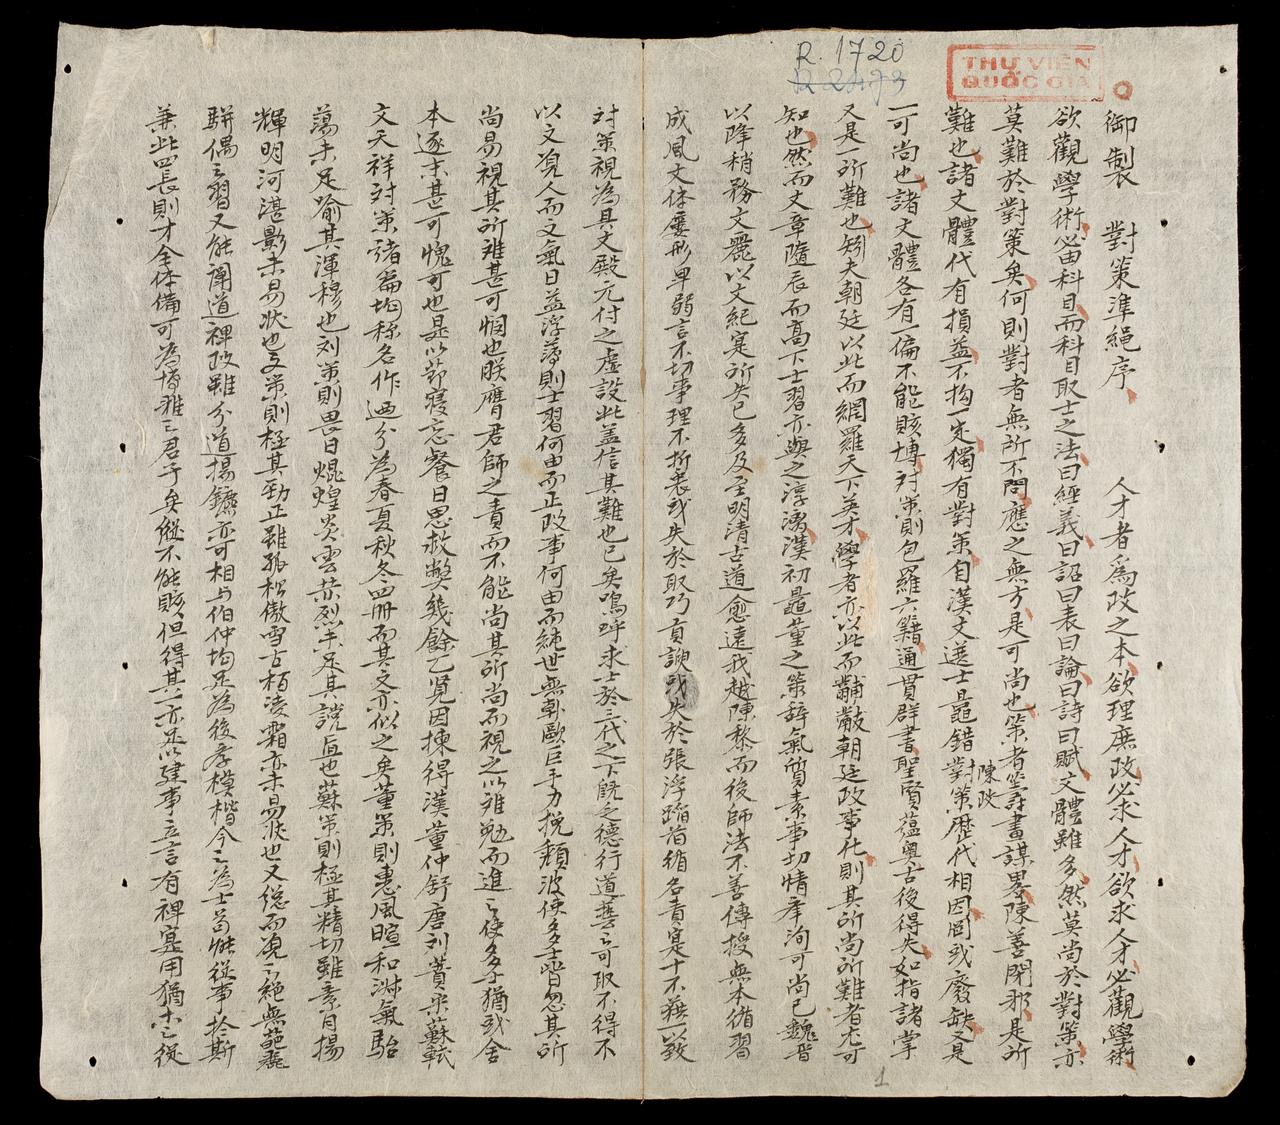 R. 1720
R 2473
THƯ VIỆN
QUỐC GIA
御製 對策準繩序 人才者為政之本欲理庶政必求人才欲求人才必觀學術
欲觀學術必由科目而科目取士之法曰經義曰詔曰表曰論曰詩曰賦文體雖多然莫尚於對策亦
莫難於對策矣何則對者無所不問應之無方是可尚也策者籌畫謀畧陳善閉邪是所
陳政
難也諸文體代有損益不拘一定獨有對策自漢文選士鼂錯對策歷代相因罔或廢缺又是
一可尚也諸文體各有一偏不能賅博対策則包羅六籍通貫群書聖賢蘊奧古後得失如指諸掌
又是一所難也矧夫朝廷以此而網羅天下英才學者亦以此而黼黻朝廷政事化則其所尚所難者尤可
知也然而文章隨辰而高下士習亦與之淳漓漢初鼂董之策辞氣質素事切情孚洵可尚已魏晉
以降稍務文麗以文紀寔所失已多及至明清古道愈遠我越陳黎而後師法不善傳授無本循習
成風文体屡形卑弱言不切事理不折衷或失於取巧貢諛或失於張浮蹈者循名責寔十不藐一致
対策視為具文殿元付之虚設此盖信其難也已矣嗚呼求士於三代之下既乏德行道藝之可取不得不
以文覌人而文氣日益浮薄則士習何由而正政事何由而純世無韓歐巨手力挽頹波使多士皆忽其所
尚易視其所难甚可惘也朕膺君師之責而不能尚其所尚而視之以难勉而進之使多士猶或舍
本逐末甚可愧可也是以節寝忘餐日思救獘幾餘乙覽因揀得漢董仲舒唐刘蕡宋蘇軾
文天祥対策諸篇均称名作廼分為春夏秋冬四冊而其文亦似之矣董策則惠風暄和淋氣駘
蕩未足喻其渾穆也刘策則畏日焜煌炎雲恭烈未足其說直也蘇策則極其精切雖素月揚
輝明河湛影未易状也文策則極其勁正雖孤松傲雪古栢凌霜亦未易状也又総而覌之絕無葩麗
駢偶之習又能闡道裨政雖分道揚鑣亦可相与伯仲均足為後孝模楷今之為士苟能従事於斯
兼此四長則才全体備可為博雅之君子矣縱不能賅但得其一亦足以建事立言有裨寔用猶木之従
1